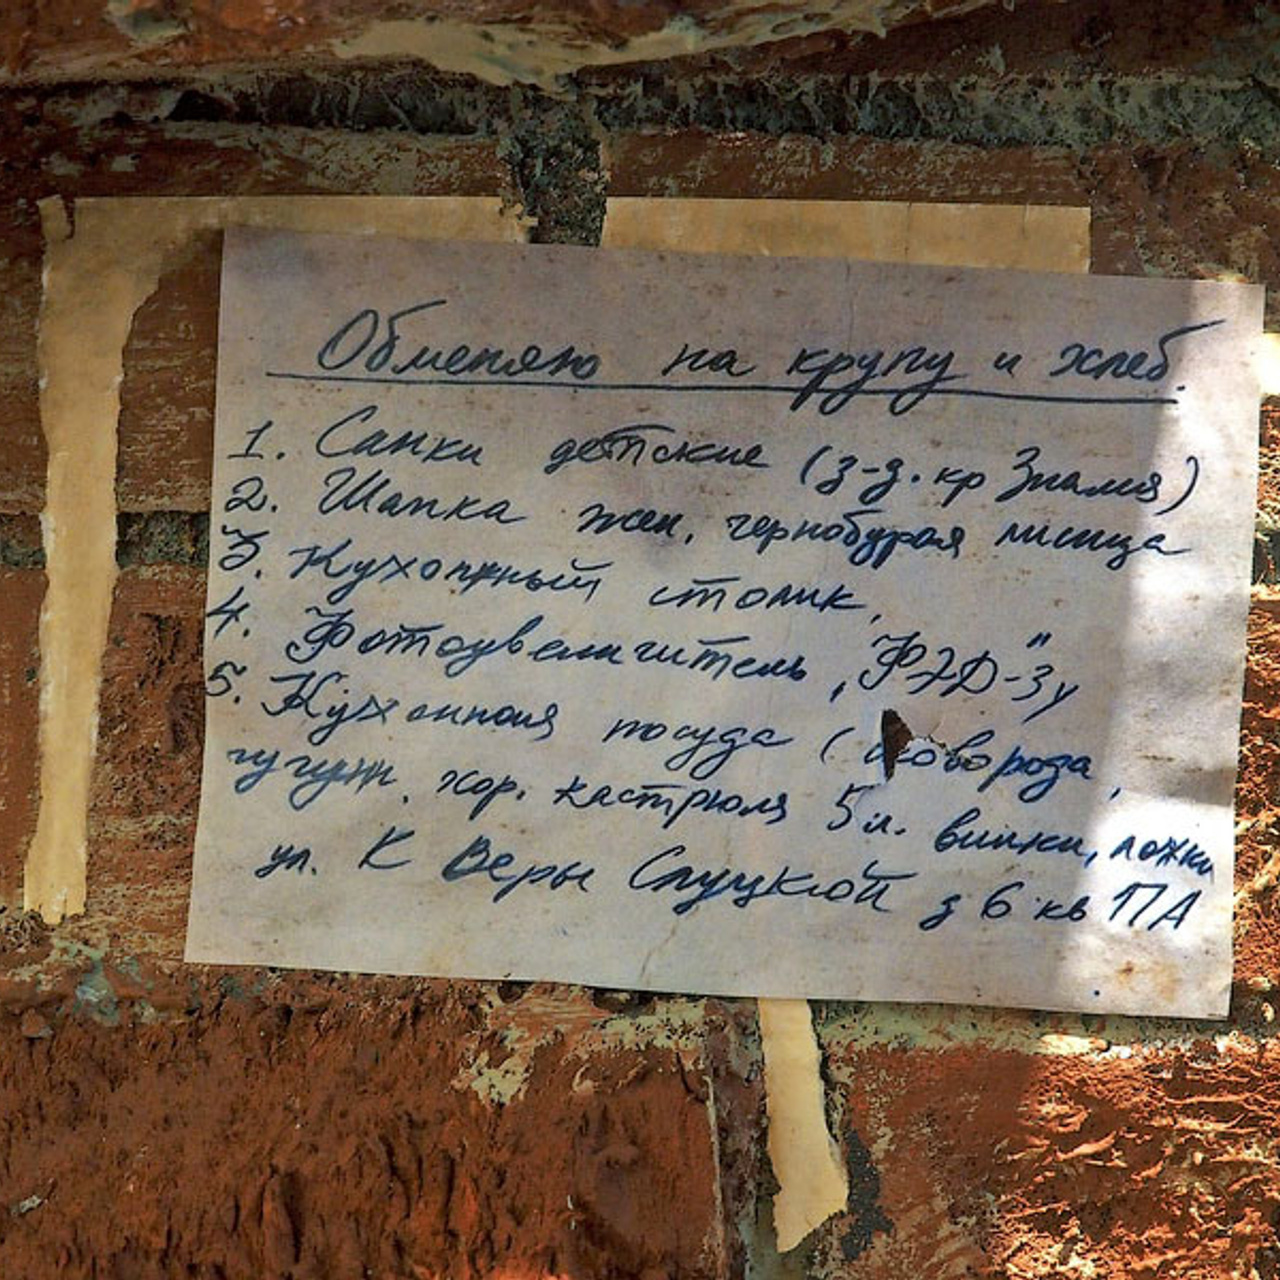 Обменяю на крупу и хлеб.
1. Санки детские (з-д. кр Знамя)
2. Шапка жен, чернобурая лисица
3. Кухонный столик,
4. Фотоувеличитель, „ФЭД-3у"
5. Кухонная посуда (сковорода,
чугунн, хор. кастрюля 5л. вилки, ложки
ул. К Веры Слуцкой д 6 кв 17А